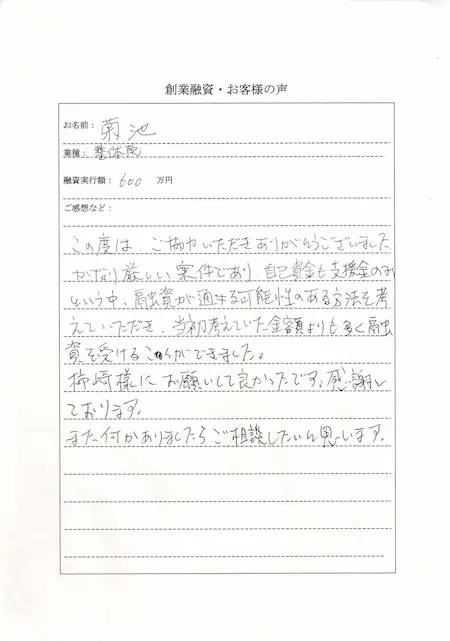 創業融資・お客様の声
お名前： 菊池
業種： 整体院
融資実行額： 600 万円
ご感想など：
この度は、ご協力いただきありがとうございました
かなり厳しい案件であり、自己資金も支援金のみ
という中、融資が通せる可能性のある方法を考
えていただき、当初考えていた金額よりも多く融
資を受けることができました。
柿崎様にお願いして良かったです。感謝し
ております。
また何かありましたらご相談したいと思います。